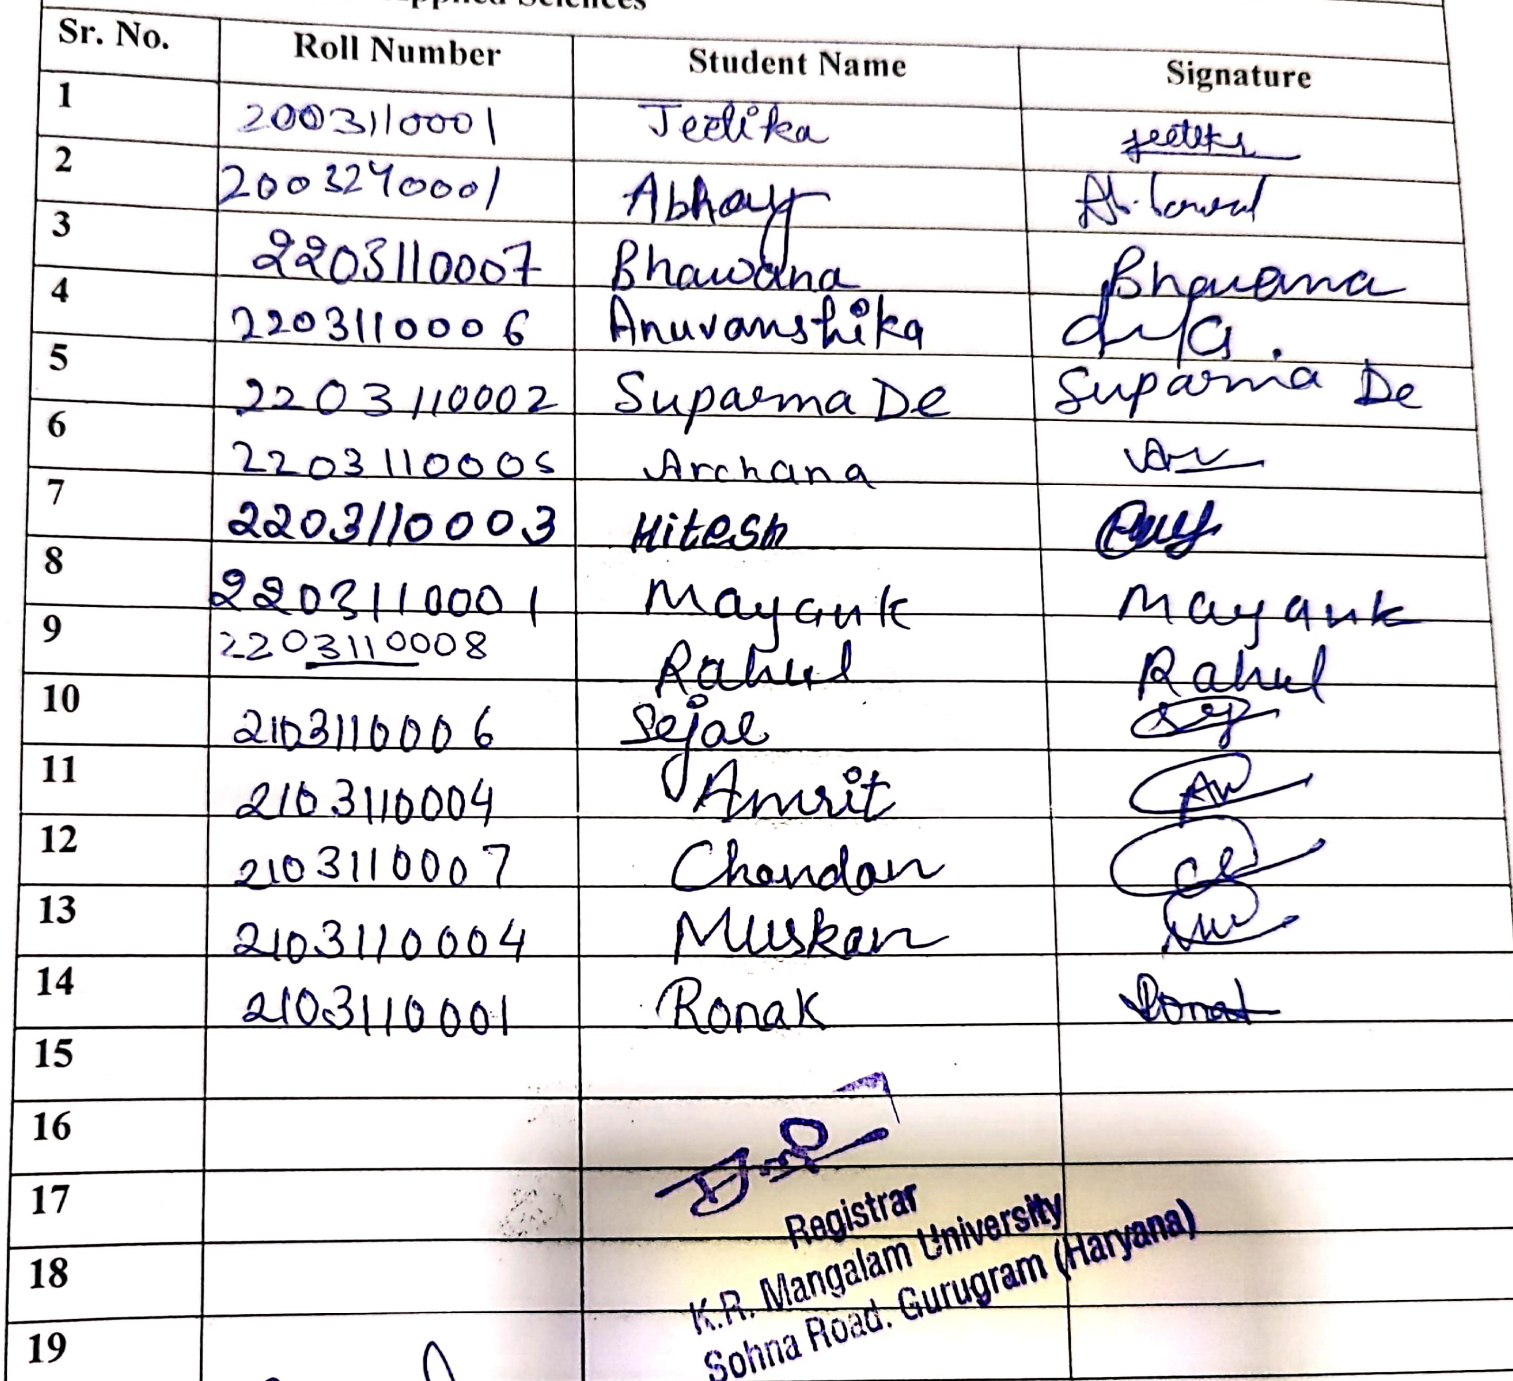 Applied Sciences
Sr. No. Roll Number Student Name Signature
1 2003110001 Jeetika Jeetika
2 2003240001 Abhay
3 2203110007 Bhawana Bhawana
4 2203110006 Anuvanshika
5 2203110002 Suparna De Suparna De
6 2203110005 Archana
7 2203110003 Hitesh
8 2203110001 Mayank Mayank
9 2203110008 Rahul Rahul
10 2103110006 Sejal
11 2103110004 Amrit
12 2103110007 Chandan
13 2103110004 Muskan
14 2103110001 Ronak Ronak
15
16
17
18
19
Registrar
K.R. Mangalam University
Sohna Road. Gurugram (Haryana)